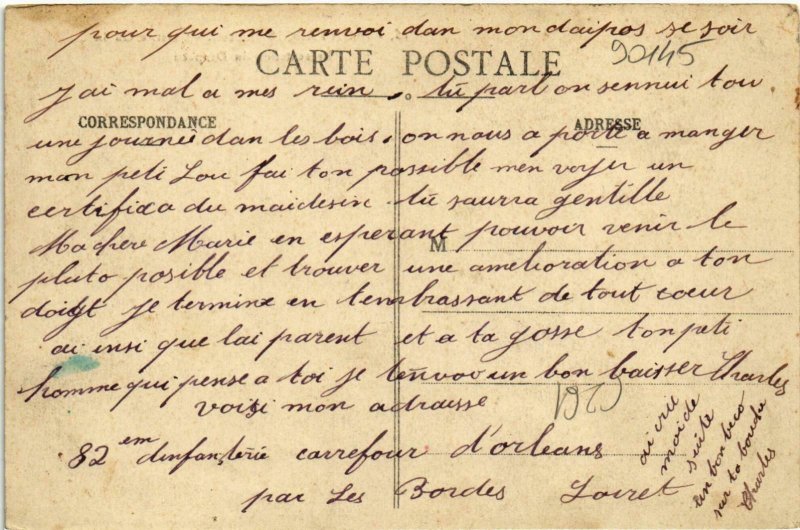 pour qui me renvoi dan mon daipos se soir
90145
CARTE POSTALE
j'ai mal a mes rein, tu parl on sennui tou
CORRESPONDANCE
ADRESSE
une journée dan les bois, on nous a porté a manger
mon peti Lou fai ton possible men voyer un
certifica du maidesin tu saurra gentille
Ma chere Marie en esperant pouvoir venir le
M
pluto posible et trouver une amelioration a ton
doigt je termine en tembrassant de tout cœur
ai insi que lai parent et a ta gosse ton peti
homme qui pense a toi je tenvov un bon baisser Charles
voisi mon adrausse
82em dinfanterie carrefour d'orleans
par Les Bordes Loiret
ai cri
moi de
suite
un bon beco
sur ta bouche
Charles